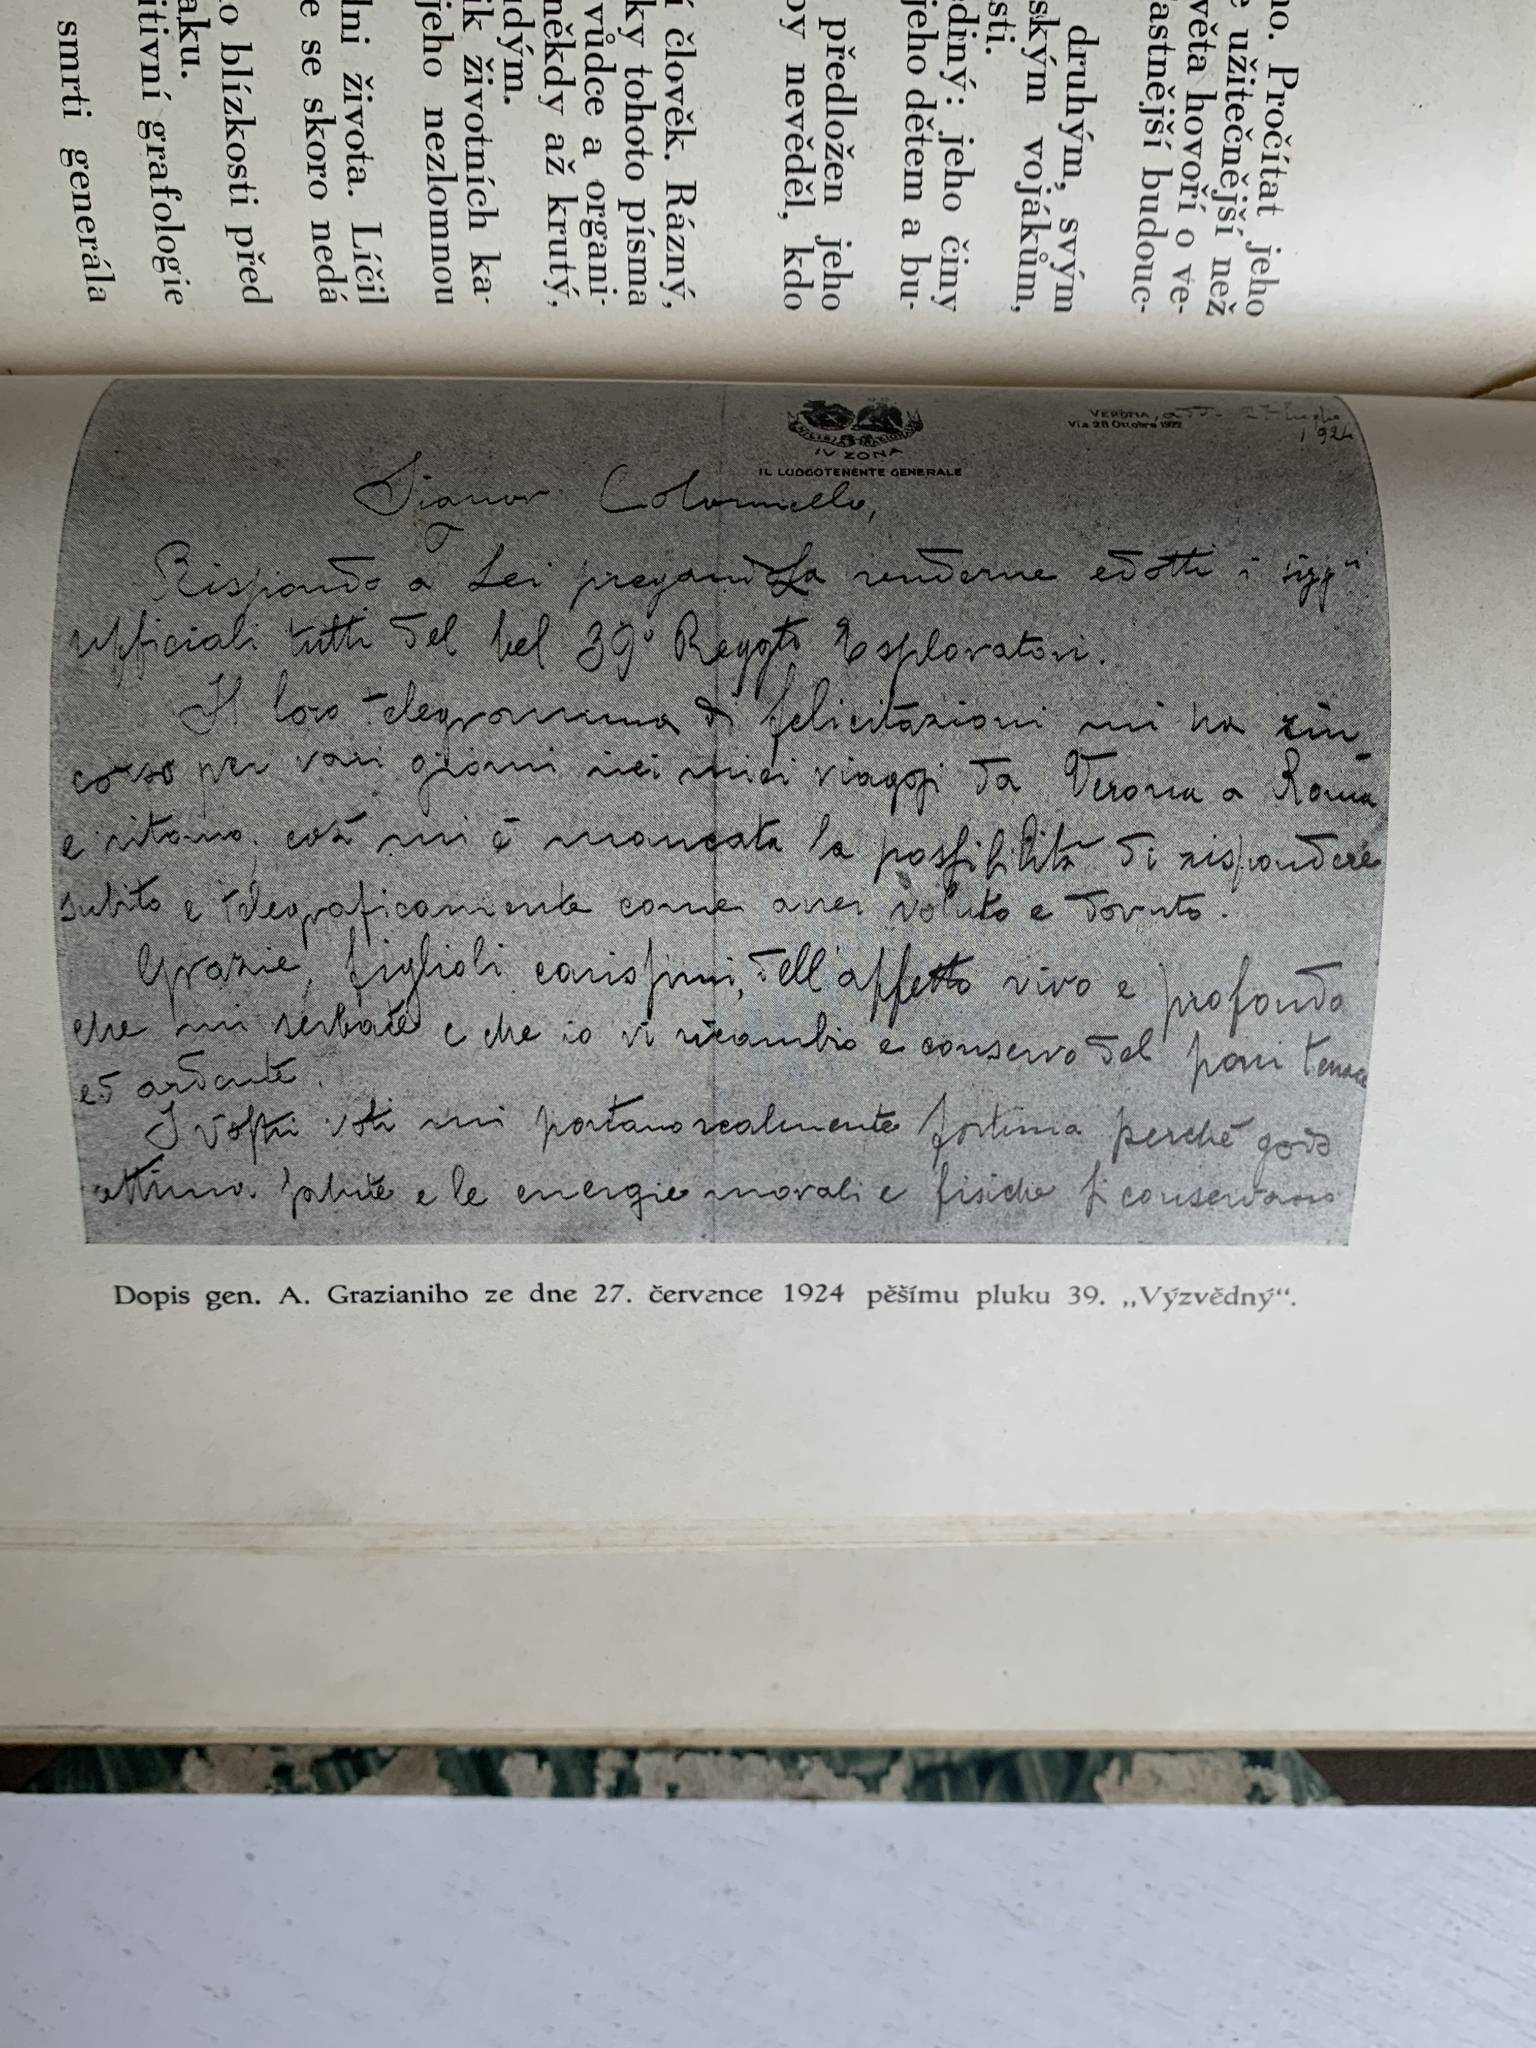 ho. Pročítat jeho
e užitečnější než
věta hovoří o ve-
astnější budouc-
druhým, svým
ským vojákům,
sti.
ediný: jeho činy
jeho dětem a bu-
předložen jeho
by nevěděl, kdo
í člověk. Rázný,
ky tohoto písma
vůdce a organi-
někdy až krutý,
udým.
ik životních ka-
jeho nezlomnou
dni života. Líčil
e se skoro nedá
o blízkosti před
aku.
itivní grafologie
smrti generála
IV ZONA
IL LUOGOTENENTE GENERALE
VERONA, add. 27 luglio
Via 28 Ottobre 1922
1924
Signor Colonnello,
Rispondo a Lei pregandola renderne edotti i sigg.ri
ufficiali tutti del bel 39º Reggto Esploratori.
Il loro telegramma di felicitazioni mi ha rin
corso per vari giorni nei miei viaggi da Verona a Roma
e ritorno, così mi è mancata la possibilità di rispondere
subito e telegraficamente come avrei voluto e dovuto.
Grazie, figlioli carissimi, dell'affetto vivo e profondo
che mi serbate e che io vi ricambio e conservo del pari tenace
ed ardente.
I vostri voti mi portano realmente fortuna perché godo
ottima salute e le energie morali e fisiche si conservano
Dopis gen. A. Grazianiho ze dne 27. července 1924 pěšímu pluku 39. „Výzvědný“.